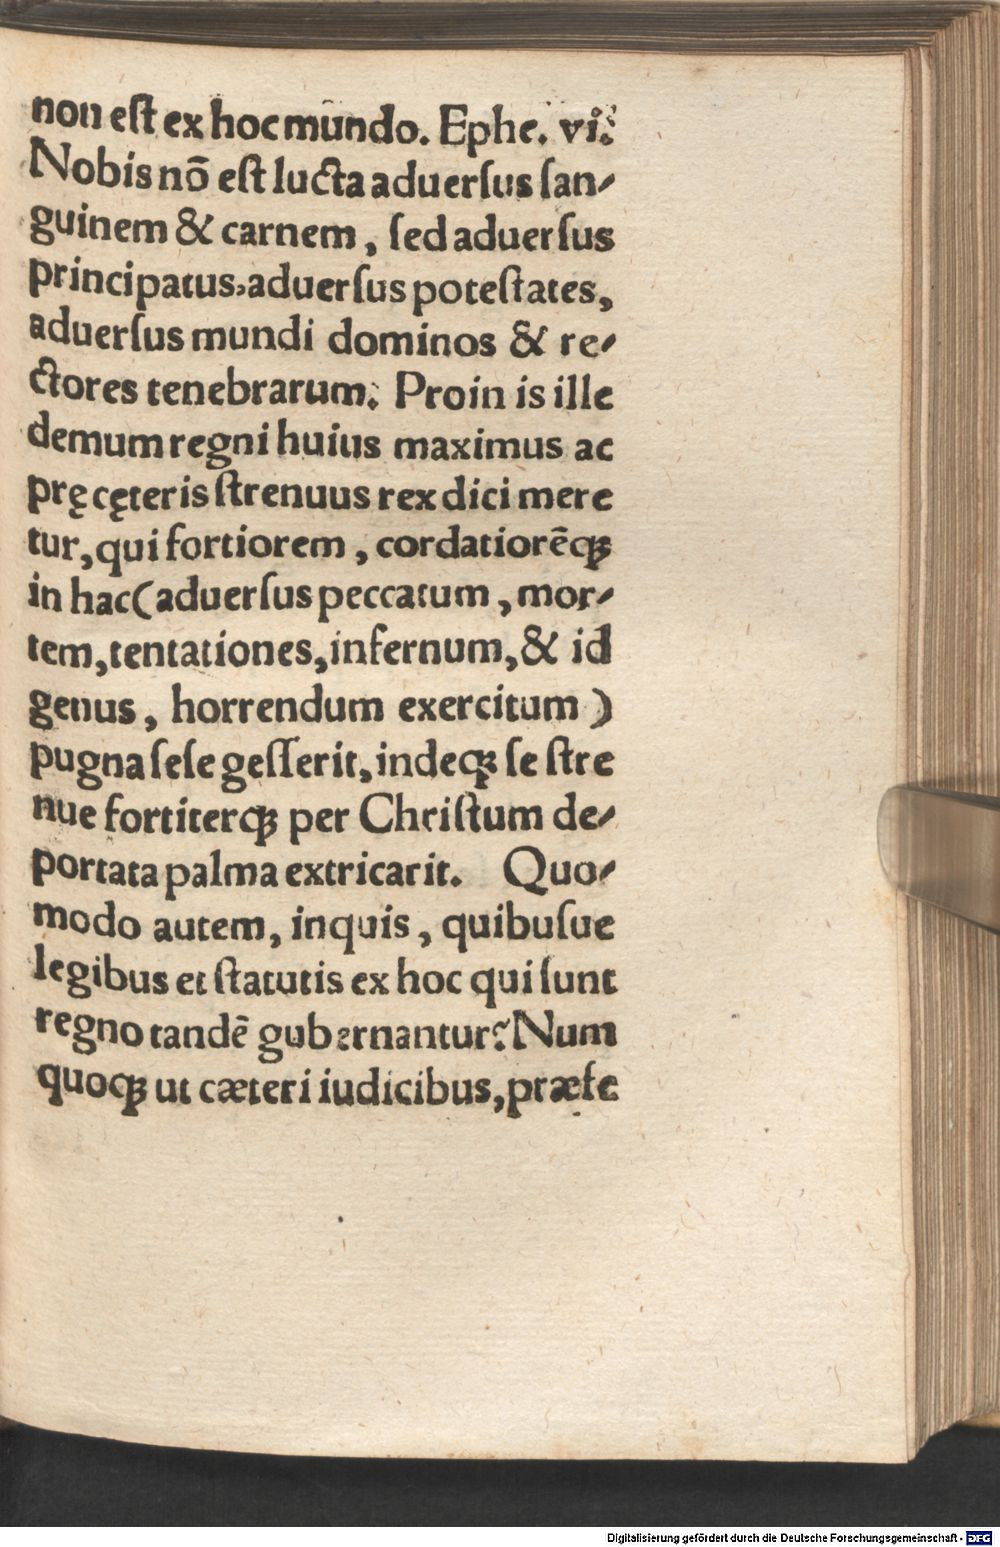 non eſt ex hoc mundo. Ephe. vi.
Nobis nō eſt lucta aduerſus ſan⸗
guinem & carnem, ſed aduerſus
principatus, aduerſus poteſtates,
aduerſus mundi dominos & re⸗
ctores tenebrarum. Proin is ille
demum regni huius maximus ac
prę cęteris ſtrenuus rex dici mere
tur, qui fortiorem, cordatiorēqꝫ
in hac (aduerſus peccatum, mor⸗
tem, tentationes, infernum, & id
genus, horrendum exercitum)
pugna ſeſe geſſerit, indeqꝫ ſe ſtre
nue fortiterqꝫ per Chriſtum de⸗
portata palma extricarit. Quo⸗
modo autem, inquis, quibuſue
legibus et ſtatutis ex hoc qui ſunt
regno tandē gubernantur? Num
quoqꝫ ut cæteri iudicibus, præfe
Digitalisierung gefördert durch die Deutsche Forschungsgemeinschaft - DFG